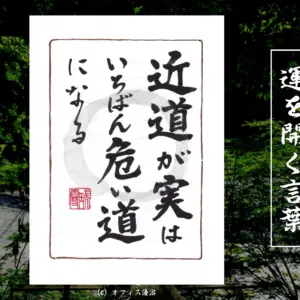 近道が実は
いちばん危い道
になる
運を開く言葉
(c) オフィス湧沼